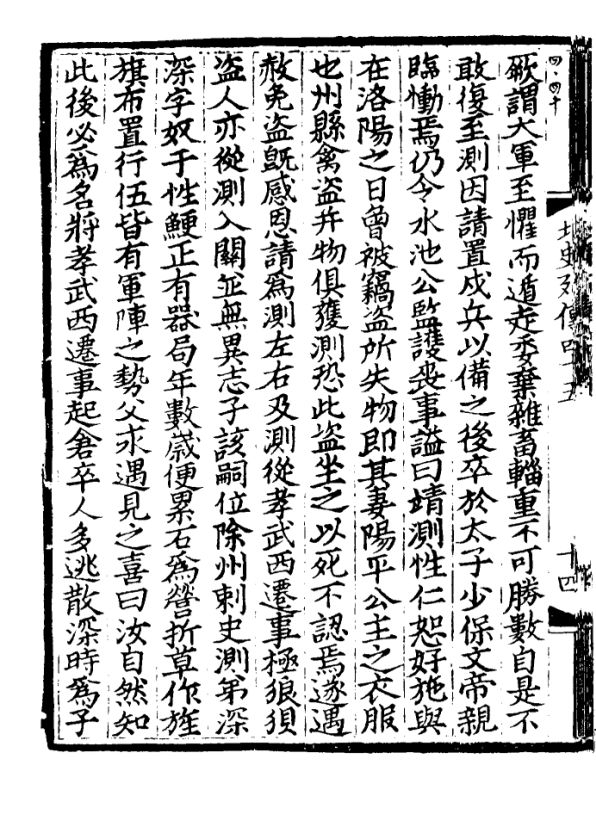 四·四十
北史列傳四十五
十四
厥謂大軍至懼而遁走委棄雜畜輜重不可勝數自是不
敢復至測因請置戍兵以備之後卒於太子少保文帝親
臨慟焉仍令水池公監護喪事謚曰靖測性仁恕好施與
在洛陽之日曾被竊盜所失物即其妻陽平公主之衣服
也州縣禽盜并物俱獲測恐此盜坐之以死不認焉遂遇
赦免盜旣感恩請爲測左右及測從孝武西遷事極狼狽
盜人亦從測入關並無異志子該嗣位除州刺史測弟深
深字奴于性鯁正有器局年數歲便累石爲營折草作旌
旗布置行伍皆有軍陣之勢父永遇見之喜曰汝自然知
此後必爲名將孝武西遷事起倉卒人多逃散深時爲子